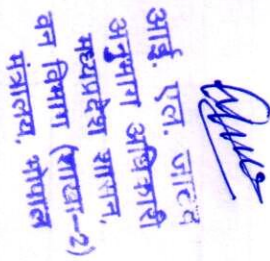 आई. एल. जाटव
अनुभाग अधिकारी
मध्यप्रदेश शासन,
वन विभाग (शाखा-2)
मंत्रालय, भोपाल